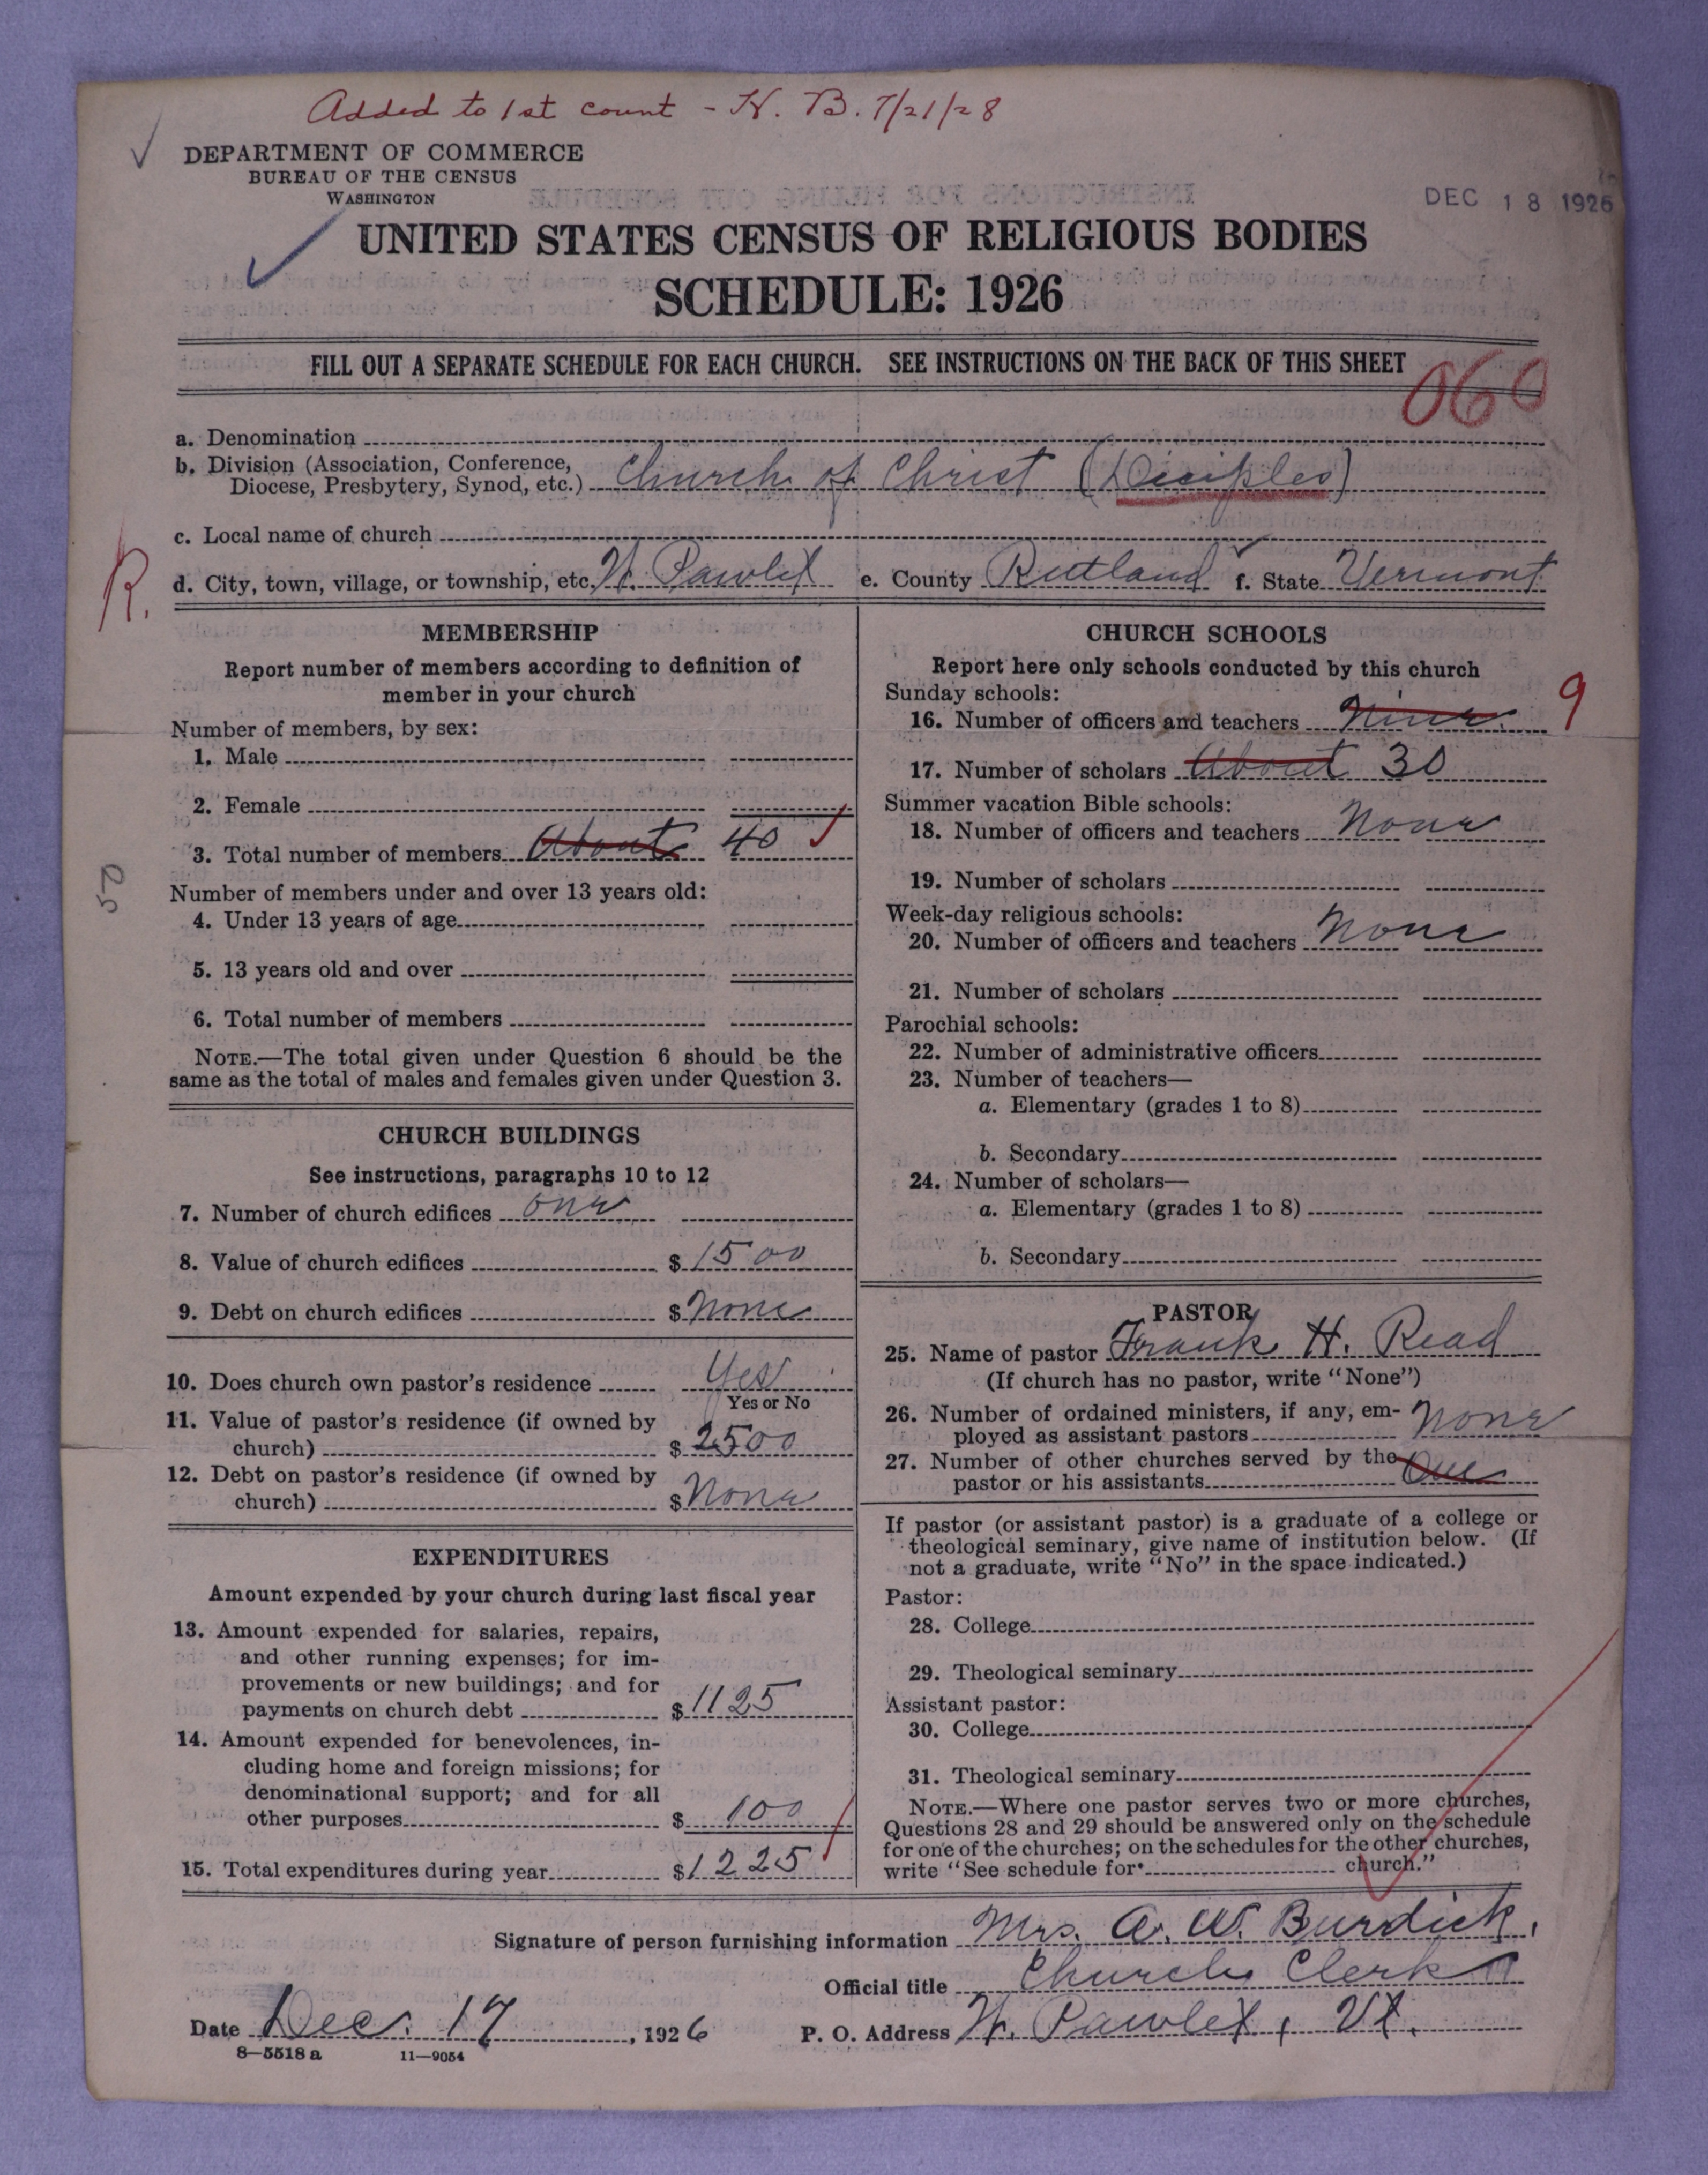 Added to 1st count - H. B. 7/21/28
DEPARTMENT OF COMMERCE
BUREAU OF THE CENSUS
WASHINGTON
DEC 18 1926
UNITED STATES CENSUS OF RELIGIOUS BODIES
SCHEDULE: 1926
FILL OUT A SEPARATE SCHEDULE FOR EACH CHURCH. SEE INSTRUCTIONS ON THE BACK OF THIS SHEET
060
a. Denomination
b. Division (Association, Conference,
Diocese, Presbytery, Synod, etc.) Church of Christ (Disciples)
c. Local name of church
R.
d. City, town, village, or township, etc. W. Pawlet e. County Rutland f. State Vermont
MEMBERSHIP
Report number of members according to definition of
member in your church
Number of members, by sex:
1. Male
2. Female
3. Total number of members About 40
50
Number of members under and over 13 years old:
4. Under 13 years of age
5. 13 years old and over
6. Total number of members
NOTE.—The total given under Question 6 should be the
same as the total of males and females given under Question 3.
CHURCH BUILDINGS
See instructions, paragraphs 10 to 12
7. Number of church edifices one
8. Value of church edifices $ 1500
9. Debt on church edifices $ None
10. Does church own pastor's residence Yes
Yes or No
11. Value of pastor's residence (if owned by
church) $ 2500
12. Debt on pastor's residence (if owned by
church) $ None
EXPENDITURES
Amount expended by your church during last fiscal year
13. Amount expended for salaries, repairs,
and other running expenses; for im-
provements or new buildings; and for
payments on church debt $ 1125
14. Amount expended for benevolences, in-
cluding home and foreign missions; for
denominational support; and for all
other purposes $ 100
15. Total expenditures during year $ 1225
CHURCH SCHOOLS
Report here only schools conducted by this church
Sunday schools:
16. Number of officers and teachers Nine 9
17. Number of scholars About 30
Summer vacation Bible schools:
18. Number of officers and teachers None
19. Number of scholars
Week-day religious schools:
20. Number of officers and teachers None
21. Number of scholars
Parochial schools:
22. Number of administrative officers
23. Number of teachers—
a. Elementary (grades 1 to 8)
b. Secondary
24. Number of scholars—
a. Elementary (grades 1 to 8)
b. Secondary
PASTOR
25. Name of pastor Frank H. Read
(If church has no pastor, write "None")
26. Number of ordained ministers, if any, em-
ployed as assistant pastors None
27. Number of other churches served by the
pastor or his assistants One
If pastor (or assistant pastor) is a graduate of a college or
theological seminary, give name of institution below. (If
not a graduate, write "No" in the space indicated.)
Pastor:
28. College
29. Theological seminary
Assistant pastor:
30. College
31. Theological seminary
NOTE.—Where one pastor serves two or more churches,
Questions 28 and 29 should be answered only on the schedule
for one of the churches; on the schedules for the other churches,
write "See schedule for church."
Signature of person furnishing information Mrs. A. W. Burdick,
Official title Church Clerk
Date Dec. 17, 1926 P. O. Address W. Pawlet, Vt.
8—5518 a 11—9054